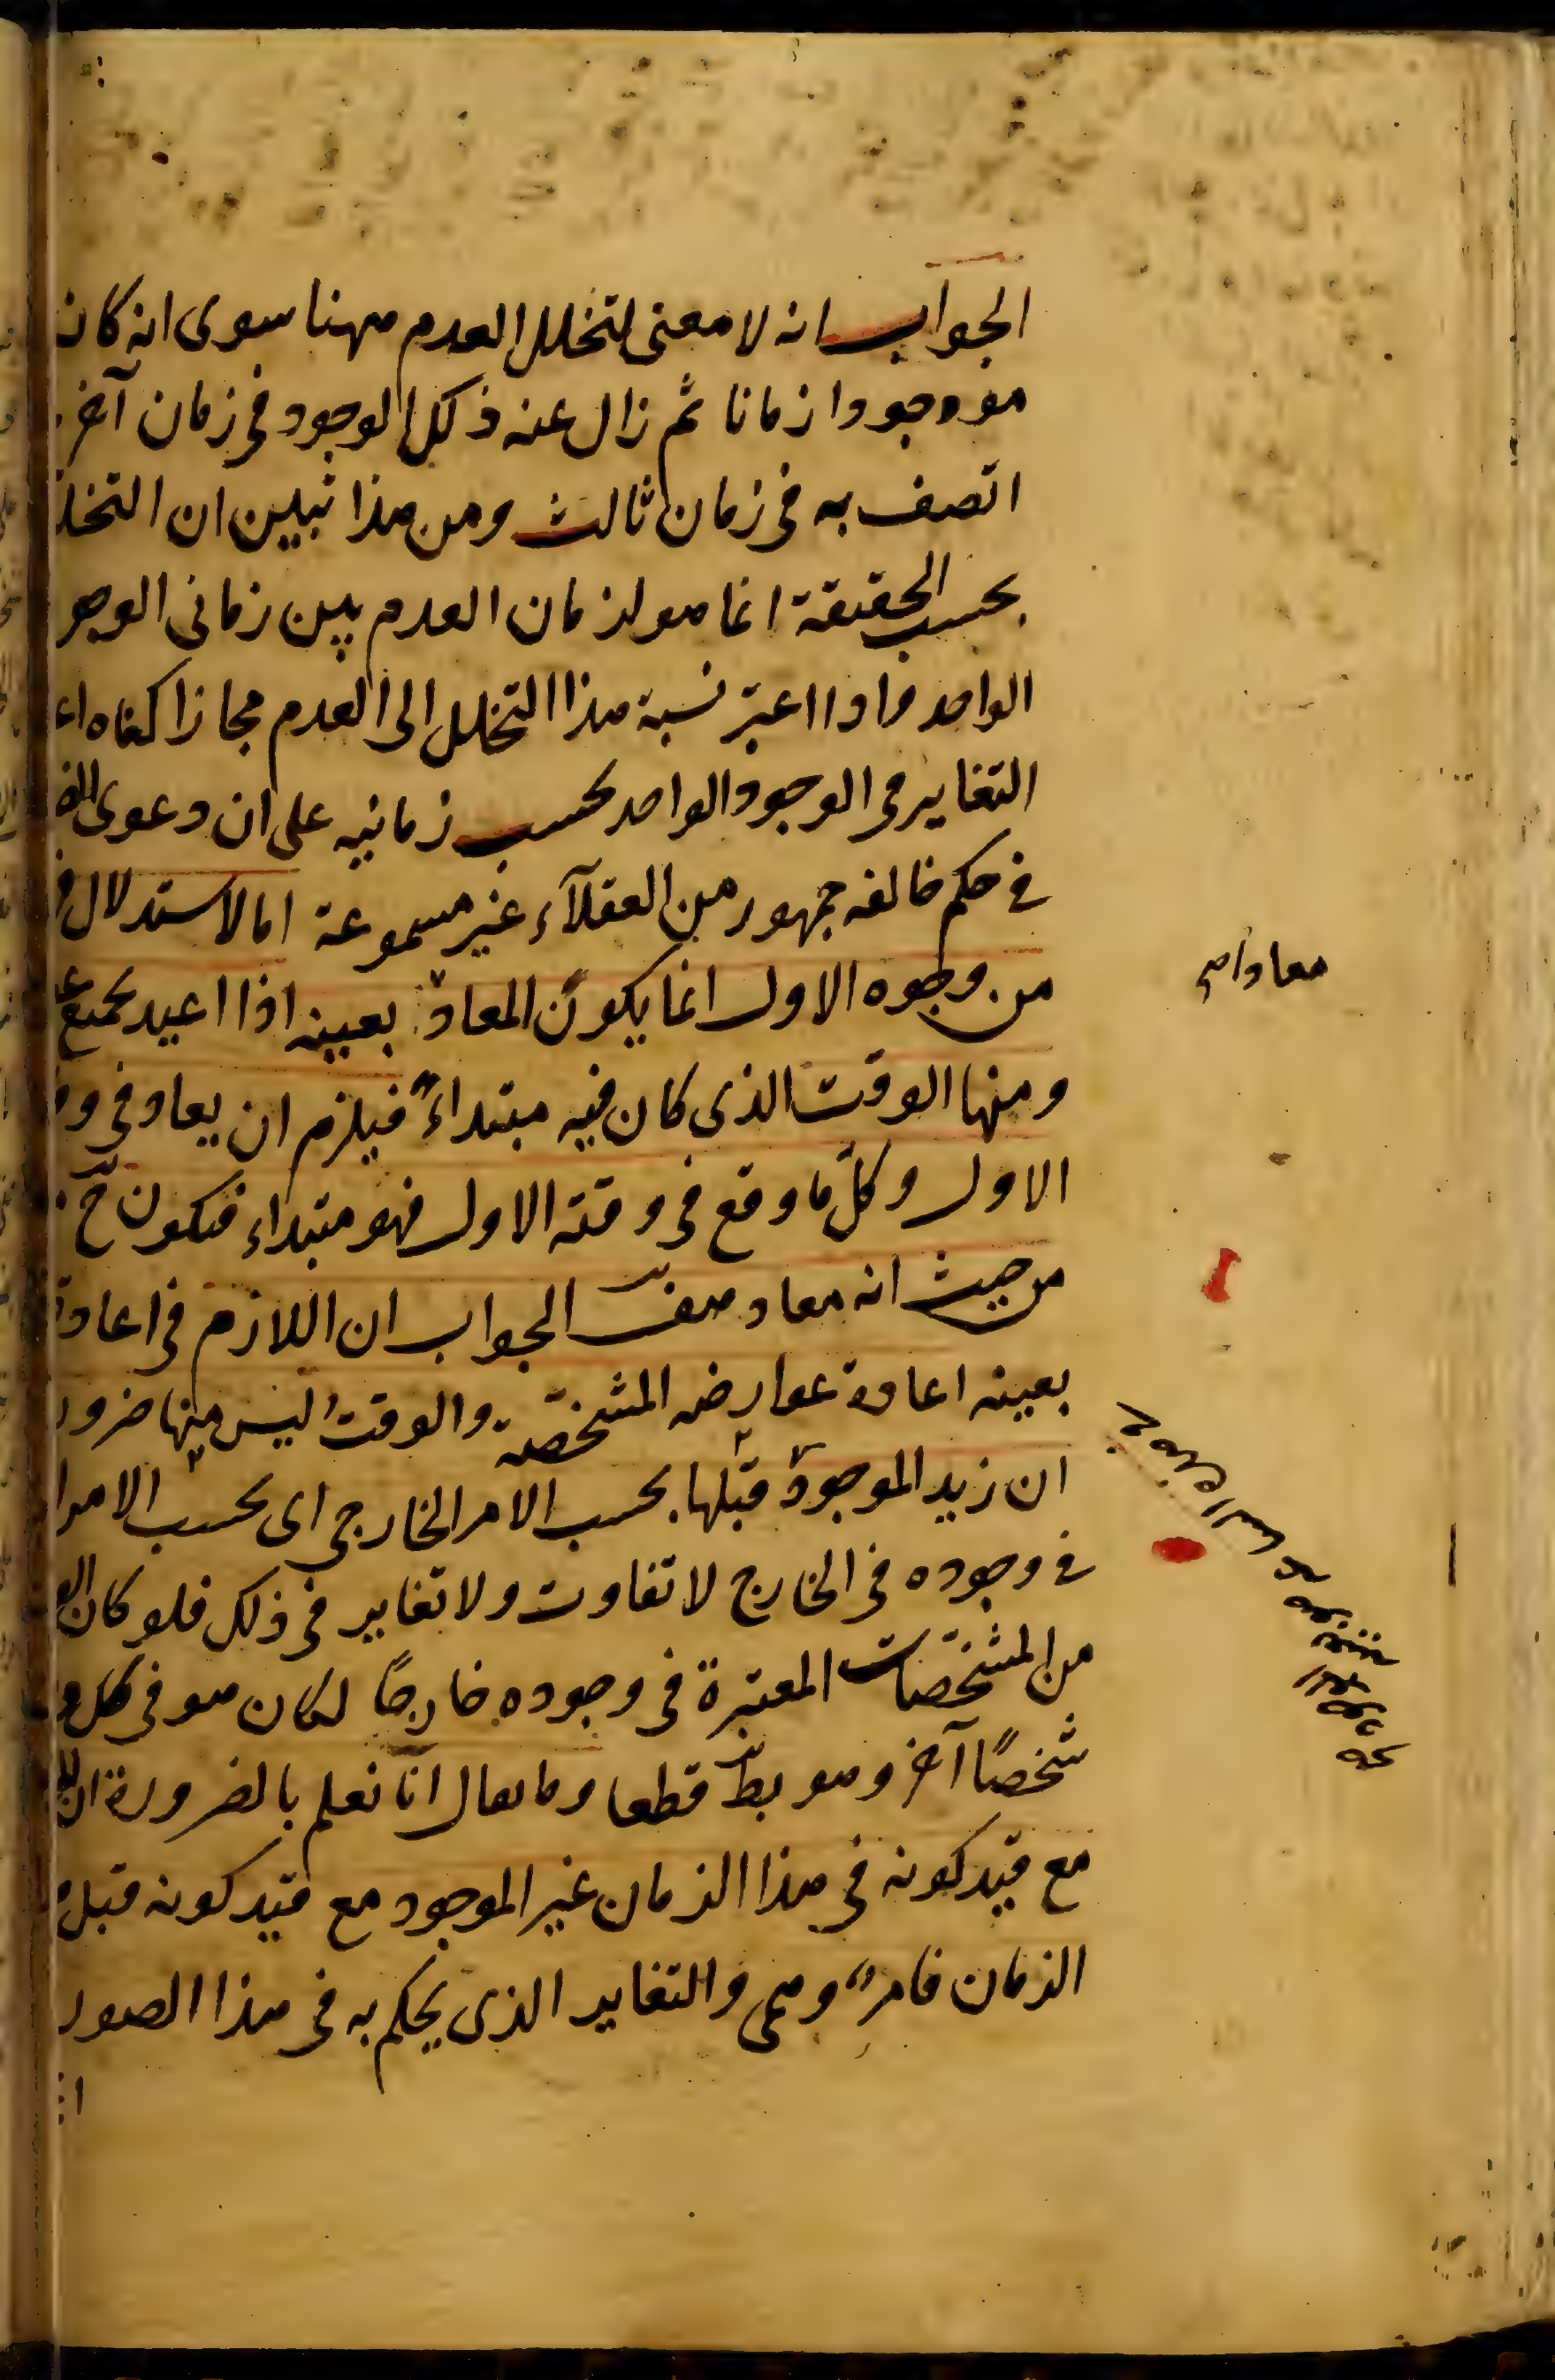 الجواب انه لا معنى لتخلل العدم ههنا سوى انه كان
موجودا زمانا ثم زال عنه ذلك الوجود فى زمان آخر
اتصف به فى زمان ثالث ومن هذا تبين ان التخلل
بحسب الحقيقة انما هو لزمان العدم بين زمانى الوجو
الواحد واذا اعتبر نسبة هذا التخلل الى العدم مجازا كفاه اع
التغاير فى الوجود الواحد بحسب زمانيه على ان دعوى
فى حكم خالفه جمهور من العقلآء غير مسموعة اما الاستدلال
من وجوه الاول انما يكون المعاد بعينه اذا اعيد بجميع
ومنها الوقت الذى كان فيه مبتداءً فيلزم ان يعاد فى
الاول وكلّ ما وقع فى وقته الاول فهو مبتداء فيكون ح
من حيث انه معاد هف الجواب ان اللازم فى اعادة
بعينه اعادة عوارضه المشخّصة والوقت ليس منها ضرور
ان زيد الموجود قبلها بحسب الامر الخارجى اى بحسب الامر
فى وجوده فى الخارج لا تفاوت ولا تغاير فى ذلك فلو كان
من المشخّصات المعتبرة فى وجوده خارجًا لكان هو فى كل
شخصًا آخر وهو بط قطعا وما يقال انا نعلم بالضرورة ان
مع قيد كونه فى هذا الزمان غير الموجود مع قيد كونه قبل
الزمان فامرٌ وهمى والتغاير الذى يحكم به فى هذا الصور